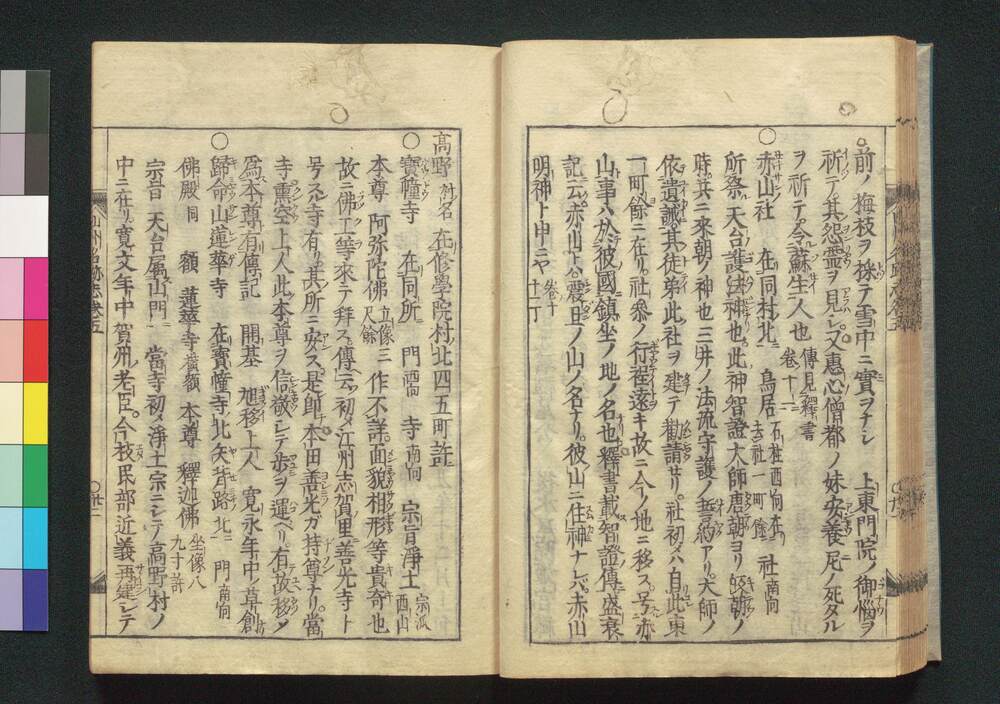 前ノ梅枝ヲ採テ雪中ニ實ヲナシ 上東門院ノ御惱ヲ
祈テ其怨靈ヲ見シ又惠心僧都ノ妹安養尼ノ死タル
ヲ祈テ令蘇生人也 傳見釋書卷十一
○赤山社 在同村北ニ 鳥居 石柱西向在去社一町餘 社南向
所祭天台護法神也此神智證大師唐朝ヨリ皈朝ノ
時共ニ來朝ノ神也三井ノ法流守護ノ誓約アリ大師ノ
依遺誡其徒弟此社ヲ建テ勸請セリ社初メハ自此東
一町餘ニ在リ社參ノ行程遠キ故ニ今ノ地ニ移ス号赤
山事ハ於彼國鎮坐ノ地ノ名也釋書載智證傳盛衰
記云赤山ト震旦ノ山ノ名ナリ彼山ニ住神ナレバ赤山
明神ト申ニヤ 卷十十二丁
高野 村名 在修學院村北四五町許
○寶幢寺 在同所 門西面 寺南向 宗旨淨土 宗派西山
本尊 阿弥陀佛 立像尺餘 三 作不詳面貌相形等貴奇也
故ニ佛工等來テ拜ス傳云初メ江州志賀里善光寺ト
号スル寺有リ其所ニ安ス是即本田善光ガ持尊ナリ當
寺熏空上人此本尊ヲ信敬シテ歩ヲ運ベリ有故移メ
爲本尊有傳記 開基 旭移上人 寛永年中ノ草創
○歸命山蓮華寺 在寳幢寺ノ北矢背路北ニ 門南向
佛殿同 額 蓮華寺 横額 本尊 釋迦佛 坐像八九寸許
宗旨 天台屬山門ニ 當寺初メ淨土宗ニシテ高野村ノ
中ニ在リ寛文年中賀州ノ老臣今枝民部近義再建シテ